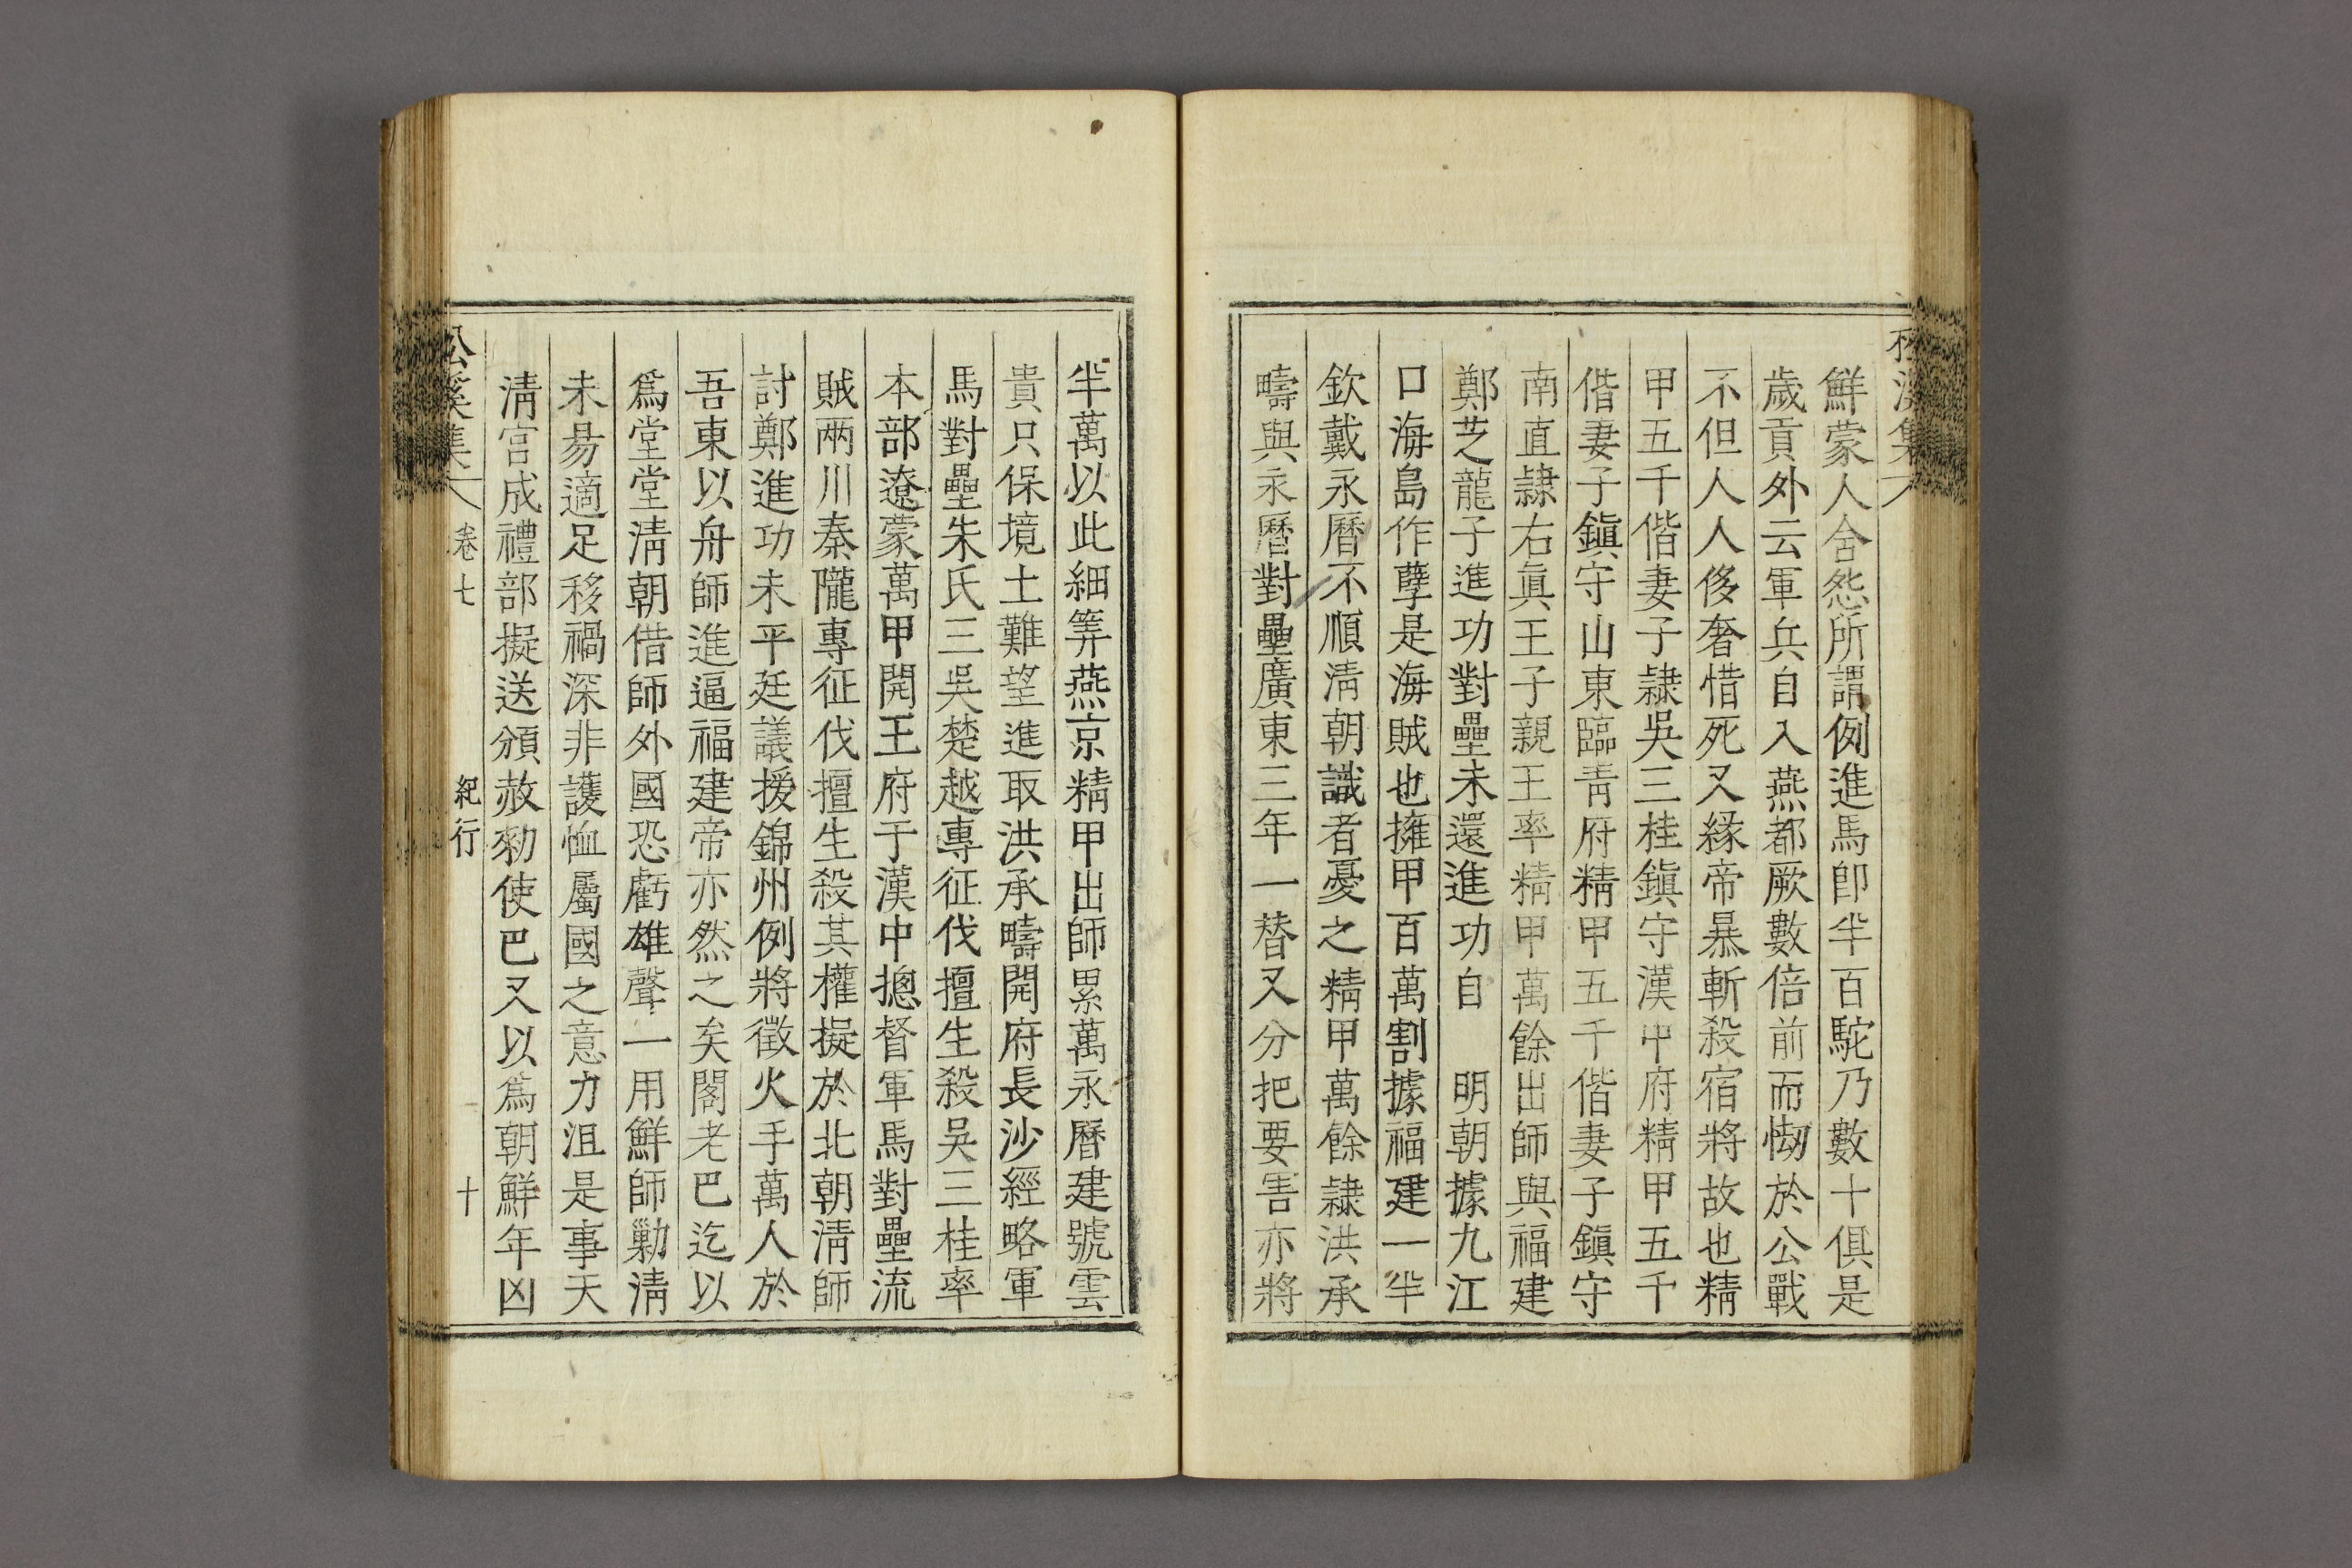 鮮蒙人含怨所謂例進馬卽半百駝乃數十俱是
歲貢外云軍兵自入燕都厥數倍前而㤼於公戰
不但人人侈奢惜死又緣帝暴斬殺宿將故也精
甲五千偕妻子隷吳三桂鎭守漢中府精甲五千
偕妻子鎭守山東臨靑府精甲五千偕妻子鎭守
南直隷右眞王子親王率精甲萬餘出師與福建
鄭芝龍子進功對壘未還進功自　明朝據九江
口海島作孽是海賊也擁甲百萬割據福建一半
欽戴永曆不順淸朝識者憂之精甲萬餘隷洪承
疇與永曆對壘廣東三年一替又分把要害亦將
半萬以此細筭燕京精甲出師累萬永曆建號雲
貴只保境土難望進取洪承疇開府長沙經略軍
馬對壘朱氏三吳楚越專征伐擅生殺吳三桂率
本部遼蒙萬甲開王府于漢中摠督軍馬對壘流
賊兩川秦隴專征伐擅生殺其權擬於北朝淸師
討鄭進功未平廷議援錦州例將徵火手萬人於
吾東以舟師進逼福建帝亦然之矣閣老巴迄以
爲堂堂淸朝借師外國恐虧雄聲一用鮮師勦淸
未易適足移禍深非護恤屬國之意力沮是事天
淸宮成禮部擬送頒赦勑使巴又以爲朝鮮年凶
松溪集 卷七 紀行 十